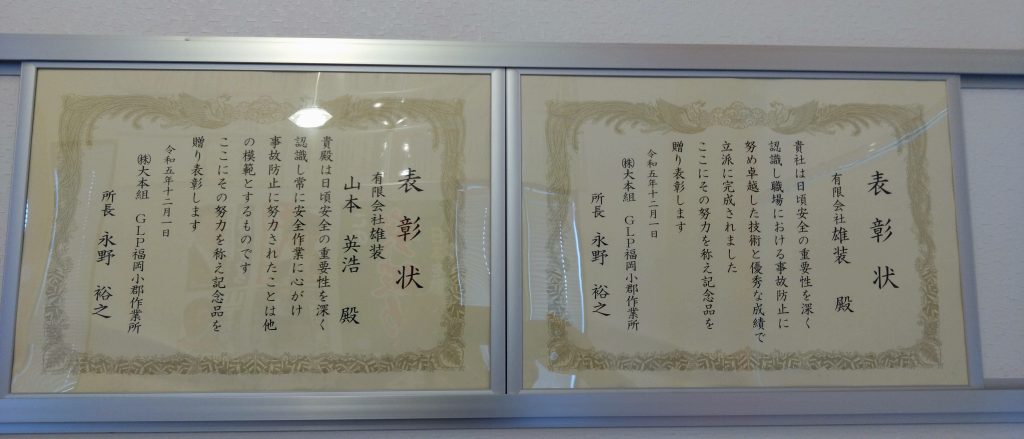 表彰状
有限会社雄装
殿
貴社は日頃安全の重要性を深く
認識し職場における事故防止に
努め卓越した技術と優秀な成績で
立派に完成されました
ここにその努力を称え記念品を
贈り表彰します
令和五年十二月一日
㈱大本組 GLP福岡小郡作業所
所長 永野 裕之
表彰状
有限会社雄装
山本 英浩 殿
貴殿は日頃安全の重要性を深く
認識し常に安全作業に心がけ
事故防止に努力されたことは他
の模範とするものです
ここにその努力を称え記念品を
贈り表彰します
令和五年十二月一日
㈱大本組 GLP福岡小郡作業所
所長 永野 裕之